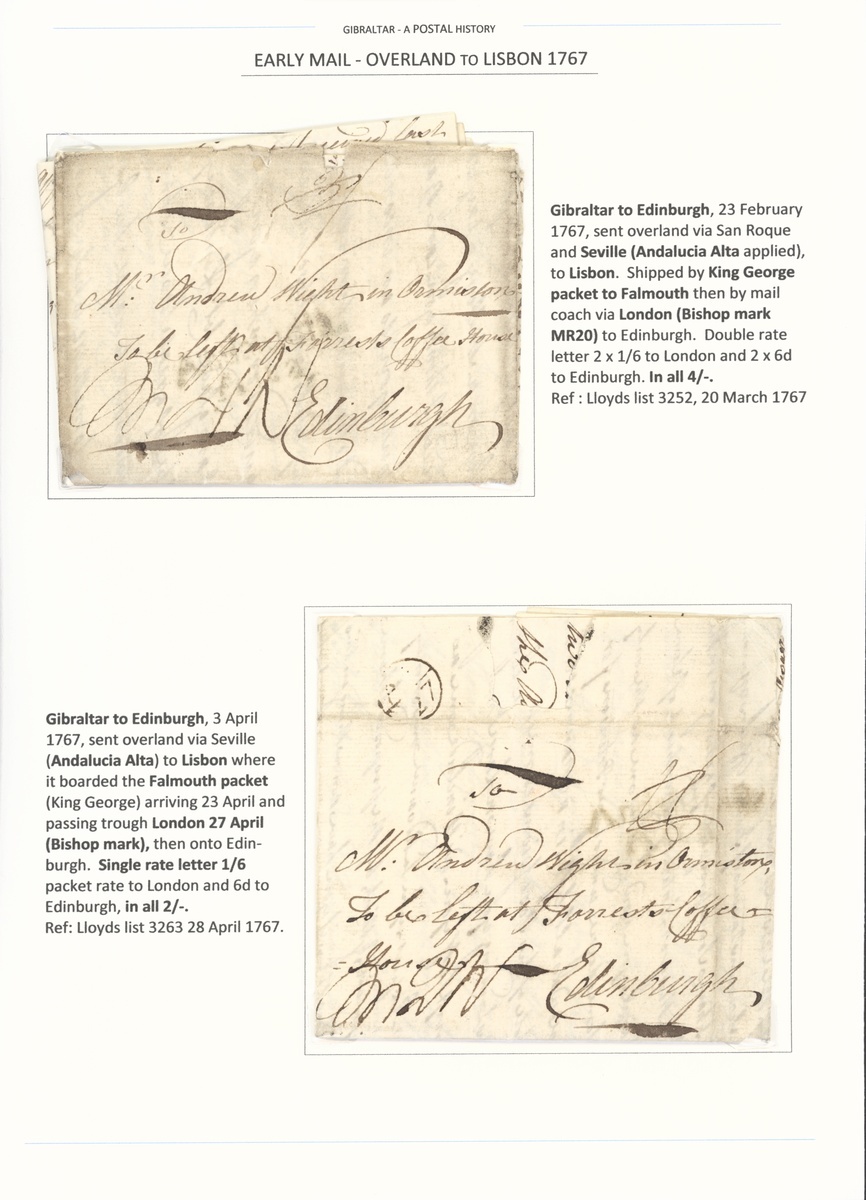 GIBRALTAR - A POSTAL HISTORY
EARLY MAIL - OVERLAND TO LISBON 1767
To
Mr. Andrew Wight in Ormiston
To be left at Forrests Coffee House
Edinburgh
Gibraltar to Edinburgh, 23 February
1767, sent overland via San Roque
and Seville (Andalucia Alta applied),
to Lisbon. Shipped by King George
packet to Falmouth then by mail
coach via London (Bishop mark
MR20) to Edinburgh. Double rate
letter 2 x 1/6 to London and 2 x 6d
to Edinburgh. In all 4/-.
Ref : Lloyds list 3252, 20 March 1767
Gibraltar to Edinburgh, 3 April
1767, sent overland via Seville
(Andalucia Alta) to Lisbon where
it boarded the Falmouth packet
(King George) arriving 23 April and
passing trough London 27 April
(Bishop mark), then onto Edin-
burgh. Single rate letter 1/6
packet rate to London and 6d to
Edinburgh, in all 2/-.
Ref: Lloyds list 3263 28 April 1767.
To
Mr. Andrew Wight in Ormiston,
To be left at Forrests Coffee =
= House
Edinburgh